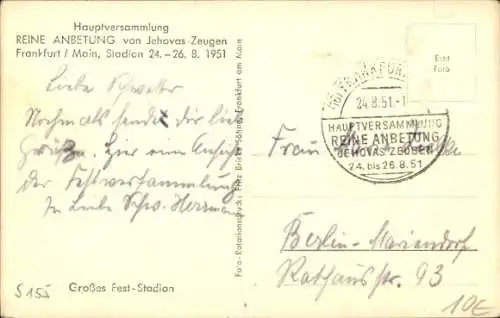 Hauptversammlung
REINE ANBETUNG von Jehovas Zeugen
Frankfurt / Main, Stadion 24.–26. 8. 1951
Liebe Schwester
Nochmals sendet dir liebe
Grüße. Hier eine Ansicht
der Festversammlung
In Liebe Schw. Herrmann
S 155
Großes Fest-Stadion
Foto-Rotationsdruck Fritz Frankfurt am Main
Echt
Foto
FRANKFURT
24.8.51.-1
HAUPTVERSAMMLUNG
REINE ANBETUNG
JEHOVAS ZEUGEN
24. bis 26.8.51
Frau
Berlin-Mariendorf
Rathausstr. 93
10€